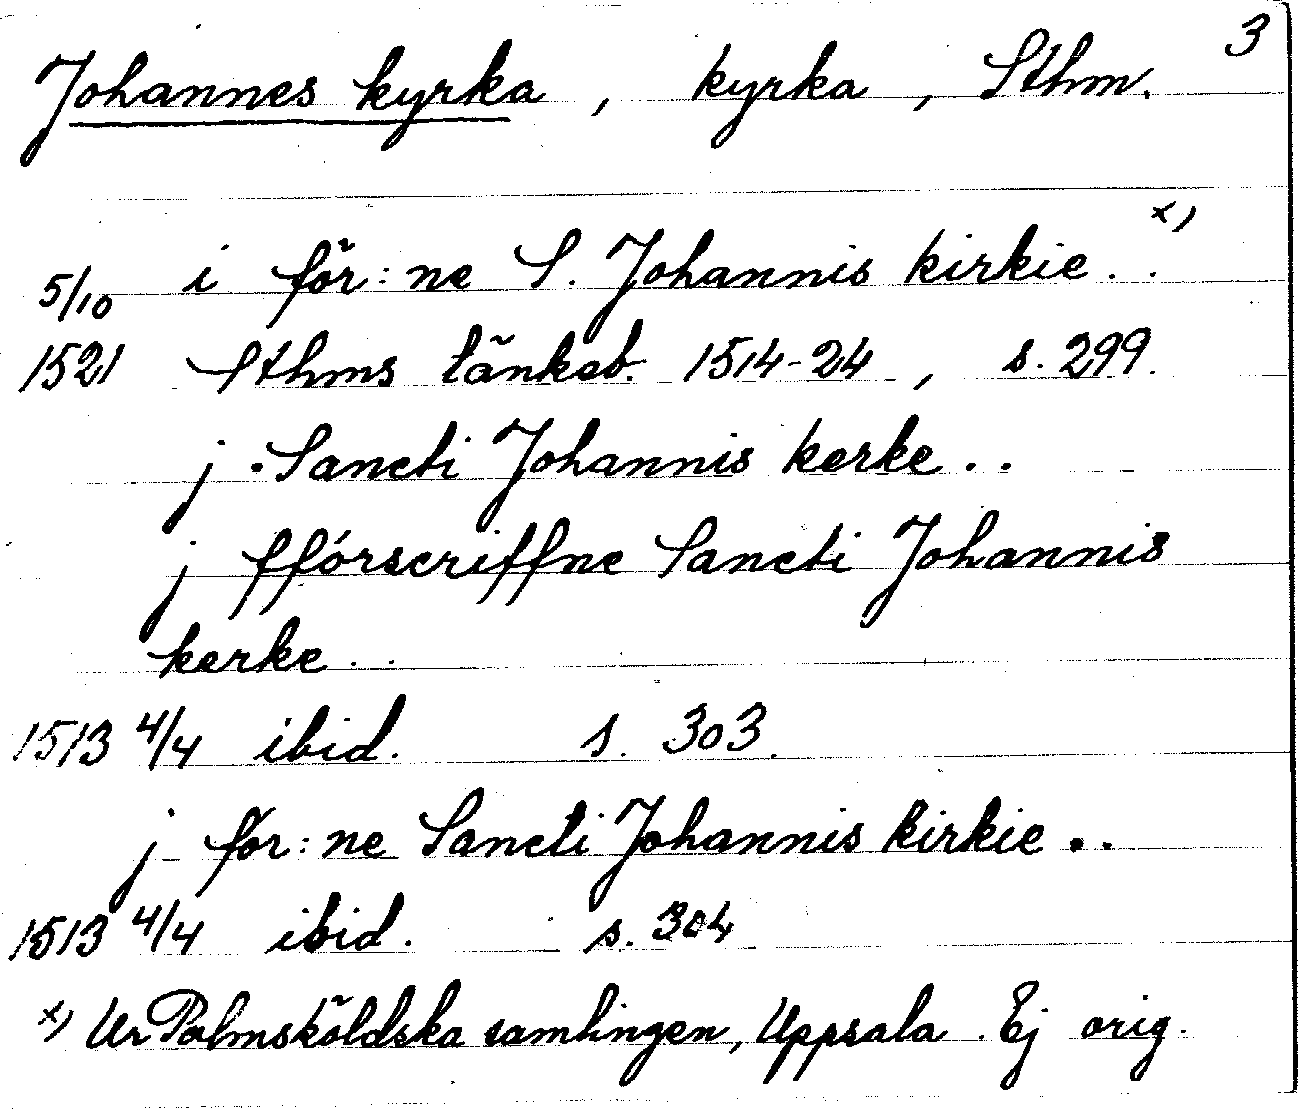 3
Johannes kyrka, kyrka, Sthm.
i för:ne S. Johannis kirkie.. x)
5/10
1521 Sthms tänkeb. 1514-24, s. 299.
j Sancti Johannis kerke..
j fförscriffne Sancti Johannis
kerke..
1513 4/4 ibid. s. 303.
j før:ne Sancti Johannis kirkie..
1513 4/4 ibid. s. 304
x) Ur Palmsköldska samlingen, Uppsala. Ej orig.